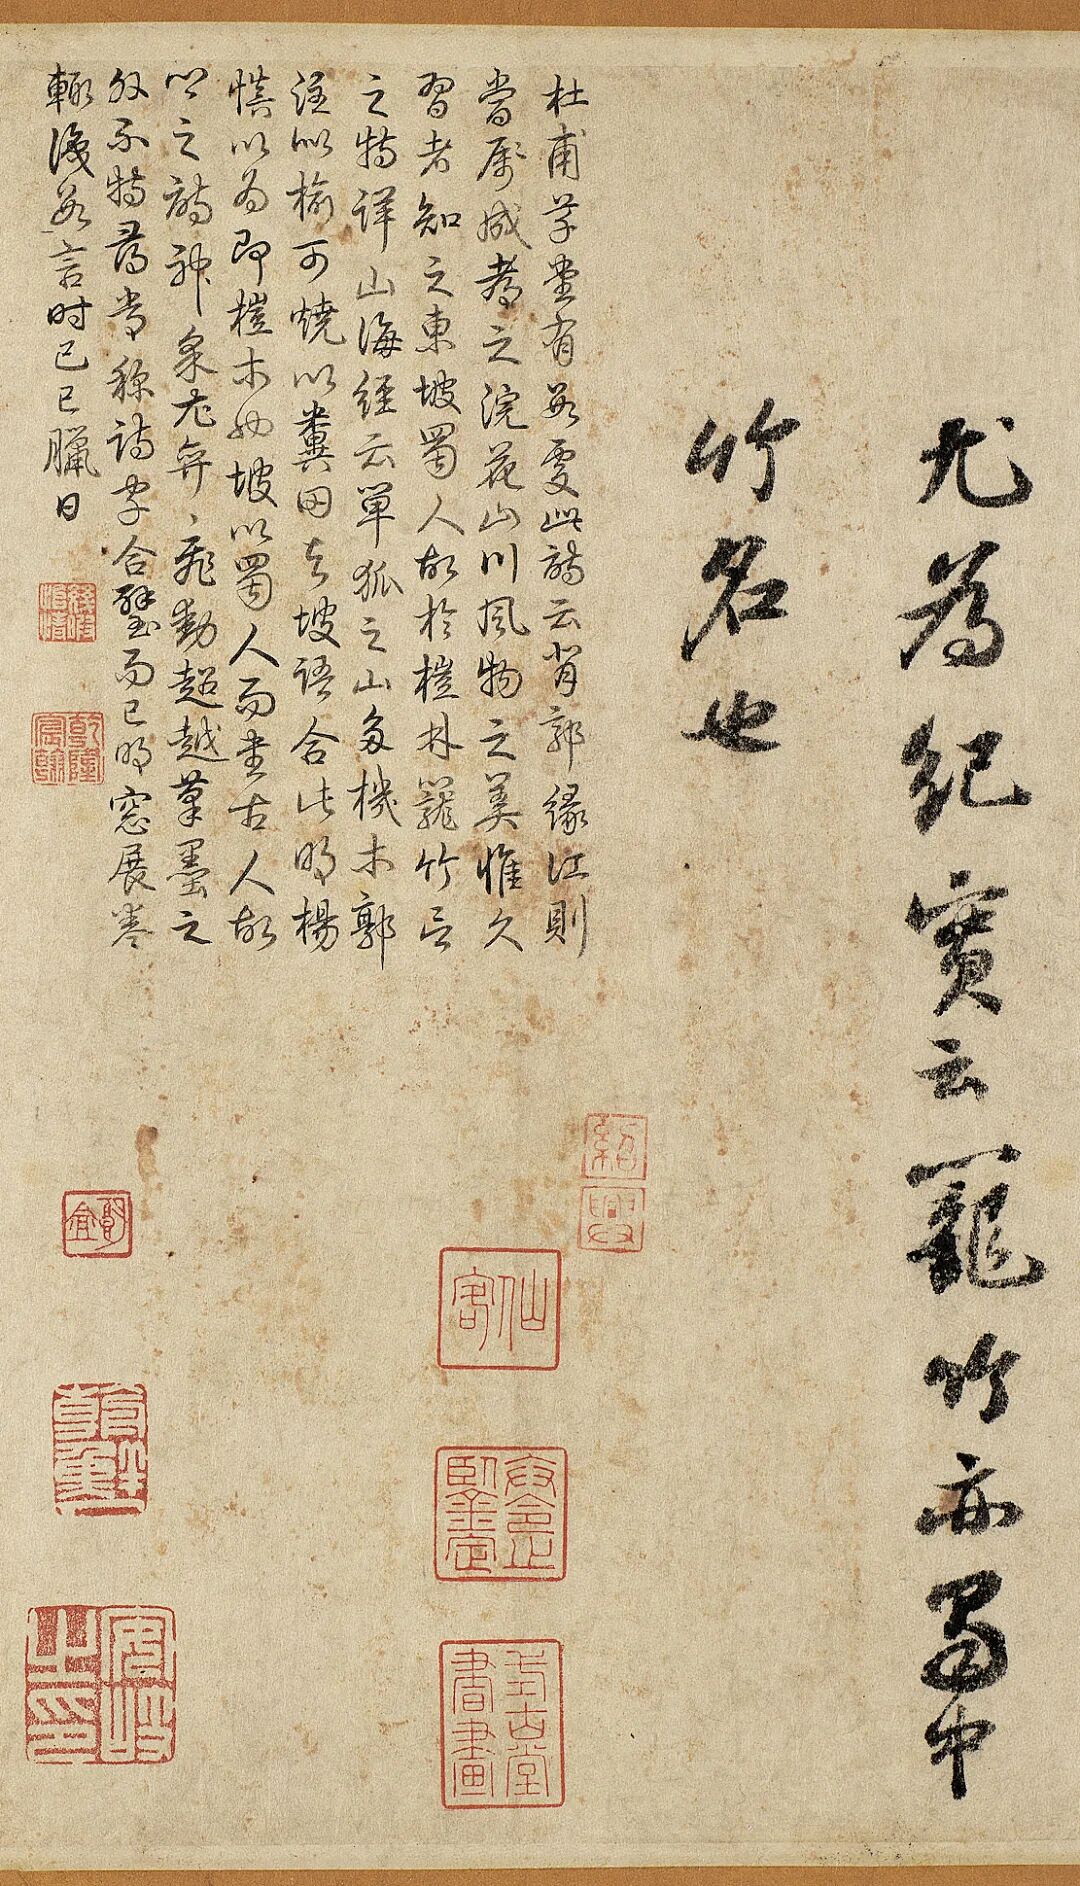 尤為紀實云籠竹亦蜀中
竹名也
杜甫草堂有數處此詩云背郭緣江則
當屬成都之浣花山川風物之美惟久
習者知之東坡蜀人故於榿林籠竹言
之特詳山海經云單狐之山多機木郭
注似榆可燒以糞田與坡語合此明楊
慎以為即榿木也坡以蜀人而書古人故
鄉之詩神采尤奕奕飛動超越筆墨之
外不特為尋常稱詩字合璧而已明窗展卷
輒復數言時己巳臘日
乾隆宸翰
紹興
仙客
安岐之印